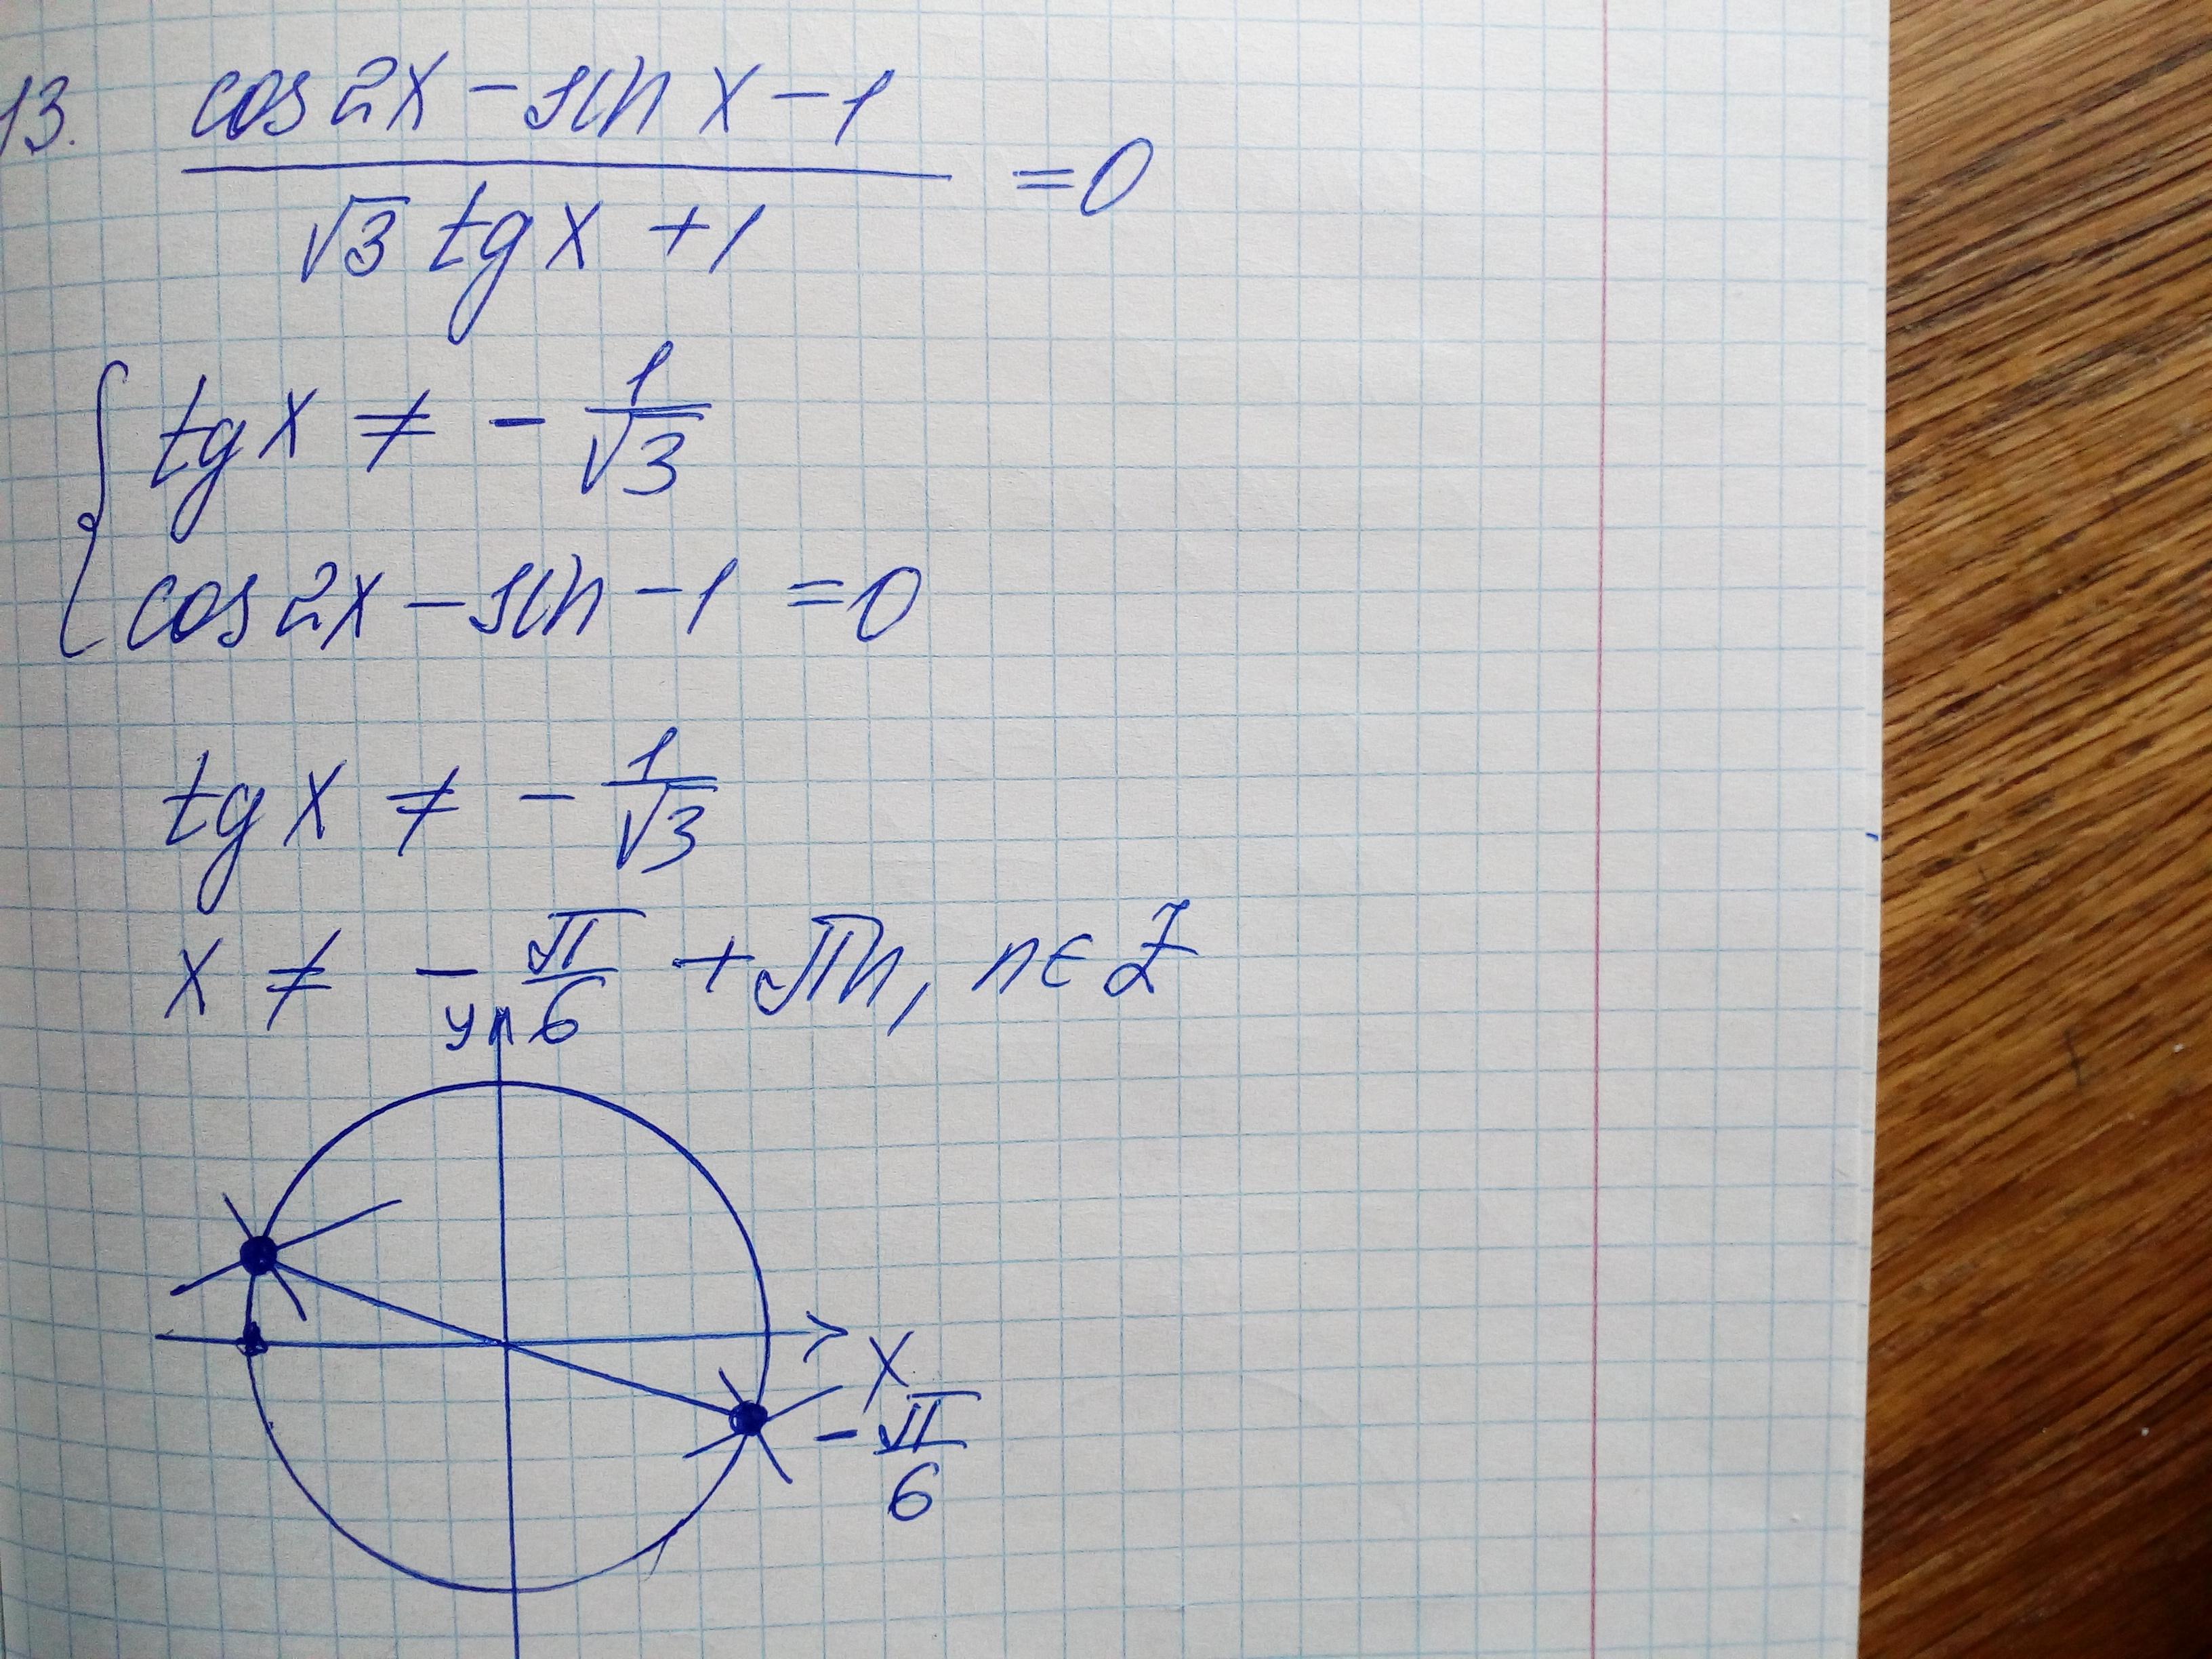 13. cos2x − sin x − 1
= 0
√3 tg x + 1
{ tg x ≠ − 1/√3
cos2x − sin − 1 = 0
tg x ≠ − 1/√3
x ≠ − π/6 + πn, n ∈ Z
y
x
− π/6